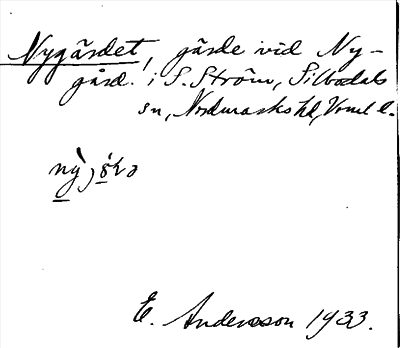 Nygärdet, gärde vid Ny-
gård i S. Ström, Silbodals
sn, Nordmarks hd, Vrml l.
E. Andersson 1933.